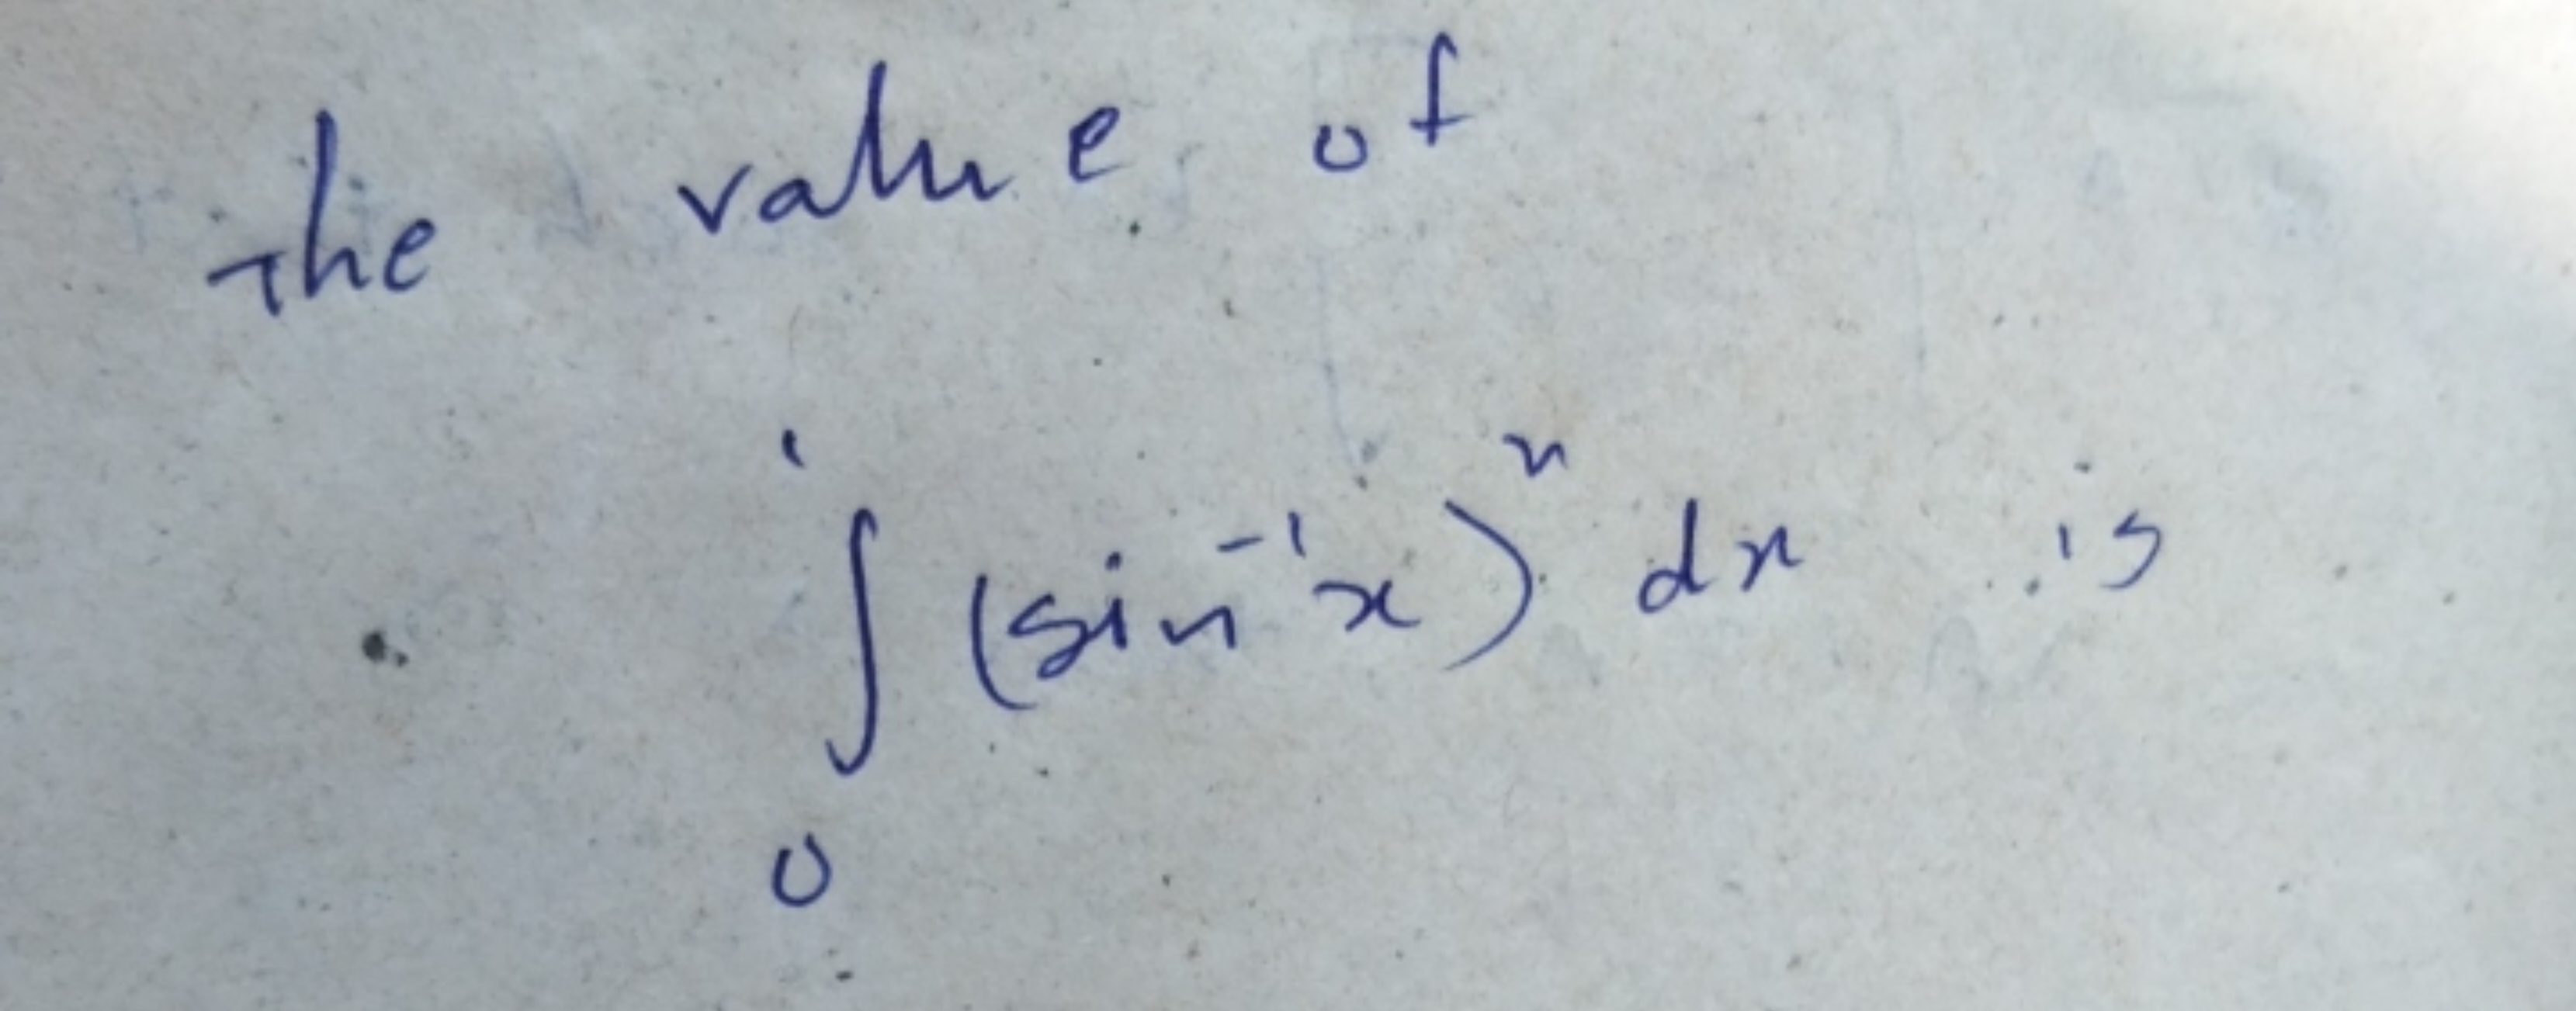 The value of
∫₀¹ (sin⁻¹x)ⁿ dx is